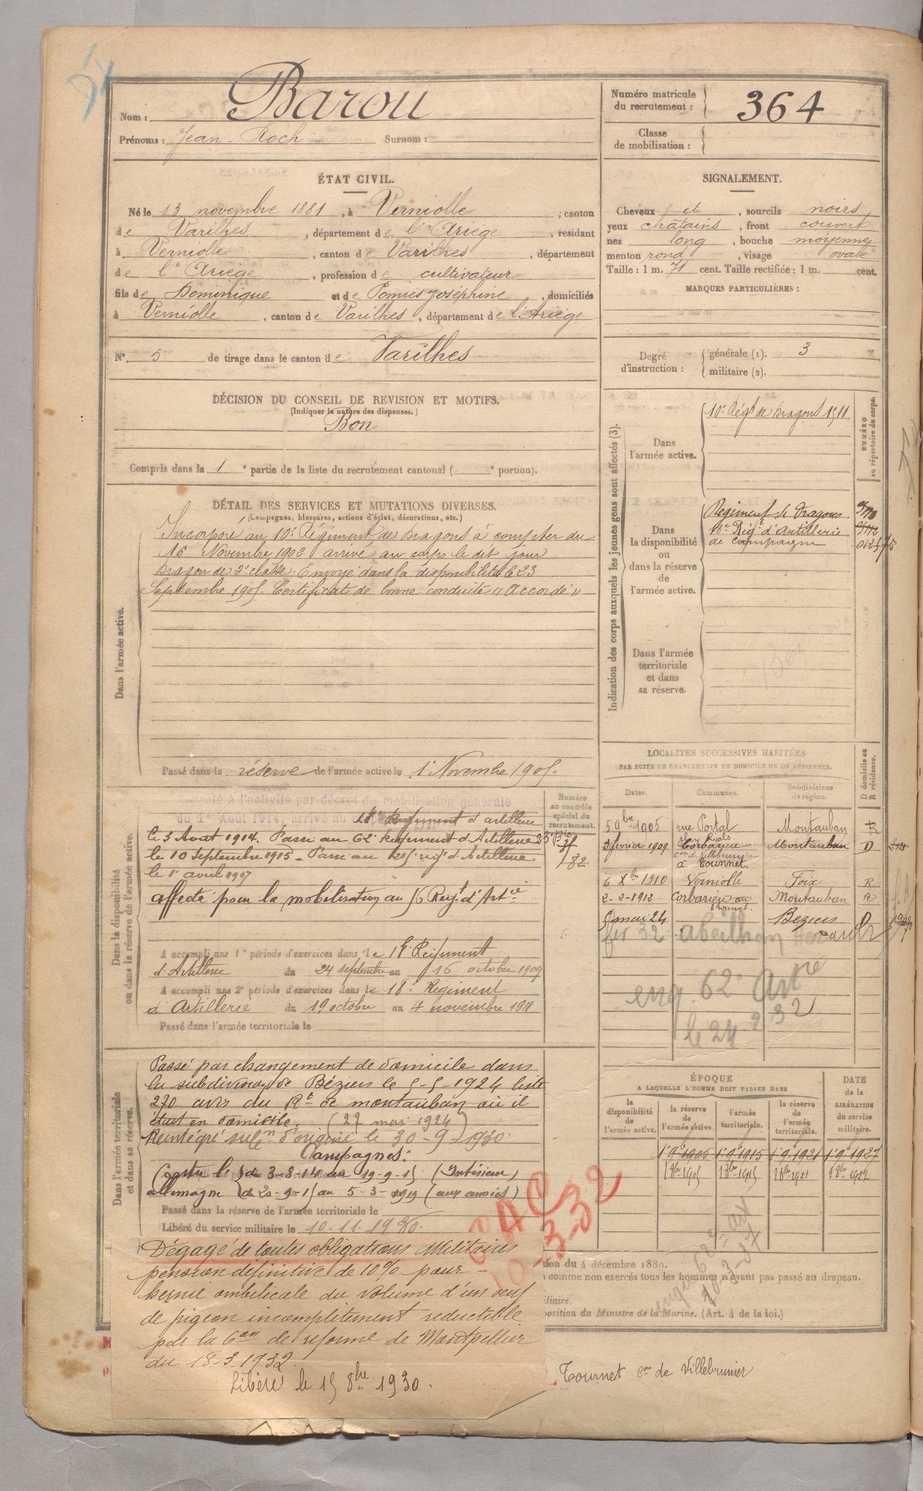 Nom : Barou
Prénoms : Jean Roch Surnom :
Numéro matricule du recrutement : 364
Classe de mobilisation :
ÉTAT CIVIL.
Né le 13 novembre 1881, à Verniolle, canton
de Varilhes, département de l'Ariège, résidant
à Verniolle, canton de Varilhes, département
de l'Ariège, profession de cultivateur
fils de Dominique et de Pomiès Joséphine, domiciliés
à Verniolle, canton de Varilhes, département de l'Ariège
N° 5 de tirage dans le canton de Varilhes
SIGNALEMENT.
Cheveux et, sourcils noirs
yeux châtains, front couvert
nez long, bouche moyenne
menton rond, visage ovale
Taille : 1 m. 71 cent. Taille rectifiée : 1 m. cent.
MARQUES PARTICULIÈRES :
Degré d'instruction : générale (1). 3
militaire (2).
DÉCISION DU CONSEIL DE REVISION ET MOTIFS.
(Indiquer la nature des dispenses.)
Bon
Compris dans la 1e partie de la liste du recrutement cantonal ( portion).
DÉTAIL DES SERVICES ET MUTATIONS DIVERSES.
(Campagnes, blessures, actions d'éclat, décorations, etc.)
Dans l'armée active.
Incorporé au 10e Régiment de Dragons à compter du
16 Novembre 1902 arrivé au corps le dit jour
Dragon de 2e classe. Envoyé dans la disponibilité le 23
Septembre 1905. Certificat de bonne conduite "Accordé"
Passé dans la réserve de l'armée active le 1 Novembre 1905.
Indication des corps auxquels les jeunes gens sont affectés (3).
NUMÉRO au répertoire du corps.
Dans l'armée active.
10e Régt de Dragons 1511
Dans la disponibilité ou dans la réserve de l'armée active.
Régiment de Dragons
Régt d'Artillerie
de campagne
Dans l'armée territoriale et dans sa réserve.
Dans la disponibilité ou dans la réserve de l'armée active.
Numéro au contrôle spécial du recrutement.
Rappelé à l'activité par décret de mobilisation générale
du 1er Août 1914, arrivé au
18e Régiment d'artillerie
le 3 Août 1914. Passé au 62e Régiment d'Artillerie
le 10 Septembre 1915. Passé au régt d'Artillerie
le 1er avril 1917
affecté pour la mobilisation au 56 Régt d'Artie
A accompli une 1e période d'exercices dans le 18e Régiment
d'Artillerie du 24 septembre au 16 octobre 1909
A accompli une 2e période d'exercices dans le 18e Régiment
d'Artillerie du 19 octobre au 4 novembre 1911
Passé dans l'armée territoriale le
LOCALITÉS SUCCESSIVES HABITÉES
PAR SUITE DE CHANGEMENTS DE DOMICILE OU DE RÉSIDENCE.
Dates. Communes. Subdivisions de région. D domicile ou R résidence.
5 9bre 1905 rue Portal Montauban R
2 février 1909 Corbarieu Montauban D
à Tournet
6 Xbre 1910 Verniolle Foix R
2-2-1912 Corbarieu Montauban R
mai 24 Béziers D
fév 32 abeilhan
eng. 62e Artrie
le 24 2 32
ÉPOQUE
A LAQUELLE L'HOMME DOIT PASSER DANS
la disponibilité de l'armée active. la réserve de l'armée active. l'armée territoriale. la réserve de l'armée territoriale.
DATE de la LIBÉRATION du service militaire.
1 9bre 1905 1 9 1915 1 9 1921 1 9 1927
Dans l'armée territoriale et dans sa réserve.
Passé par changement de domicile dans
la subdivision de Béziers le 5-5-1924 liste
270 avis du Rt de Montauban où il
était en domicile. (27 mai 1924)
Réintégré subon d'origine le 30-9-1930
Campagnes :
Contre l' de 3-8-14 au 19-9-15 (Intérieur)
allemagne de 20-9-15 au 5-3-1919 (aux armées)
Passé dans la réserve de l'armée territoriale le
Libéré du service militaire le 10.11.1930.
10-3-32
Dégagé de toutes obligations Militaires
pension définitive de 10% pour
hernie ombilicale du volume d'un oeuf
de pigeon incomplètement réductible
par la Con de réforme de Montpellier
du 18-3-1932
Libéré le 15 8bre 1930.
du 4 décembre 1889.
comme non exercés tous les hommes n'ayant pas passé au drapeau.
position du Ministre de la Marine. (Art. 4 de la loi.)
Tournet cne de Villebrumier